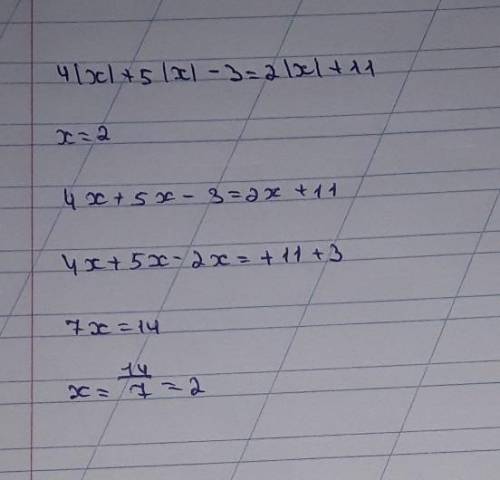 4|x|+5|x|-3=2|x|+11
x=2
4x+5x-3=2x+11
4x+5x-2x=+11+3
7x=14
x=14/7=2